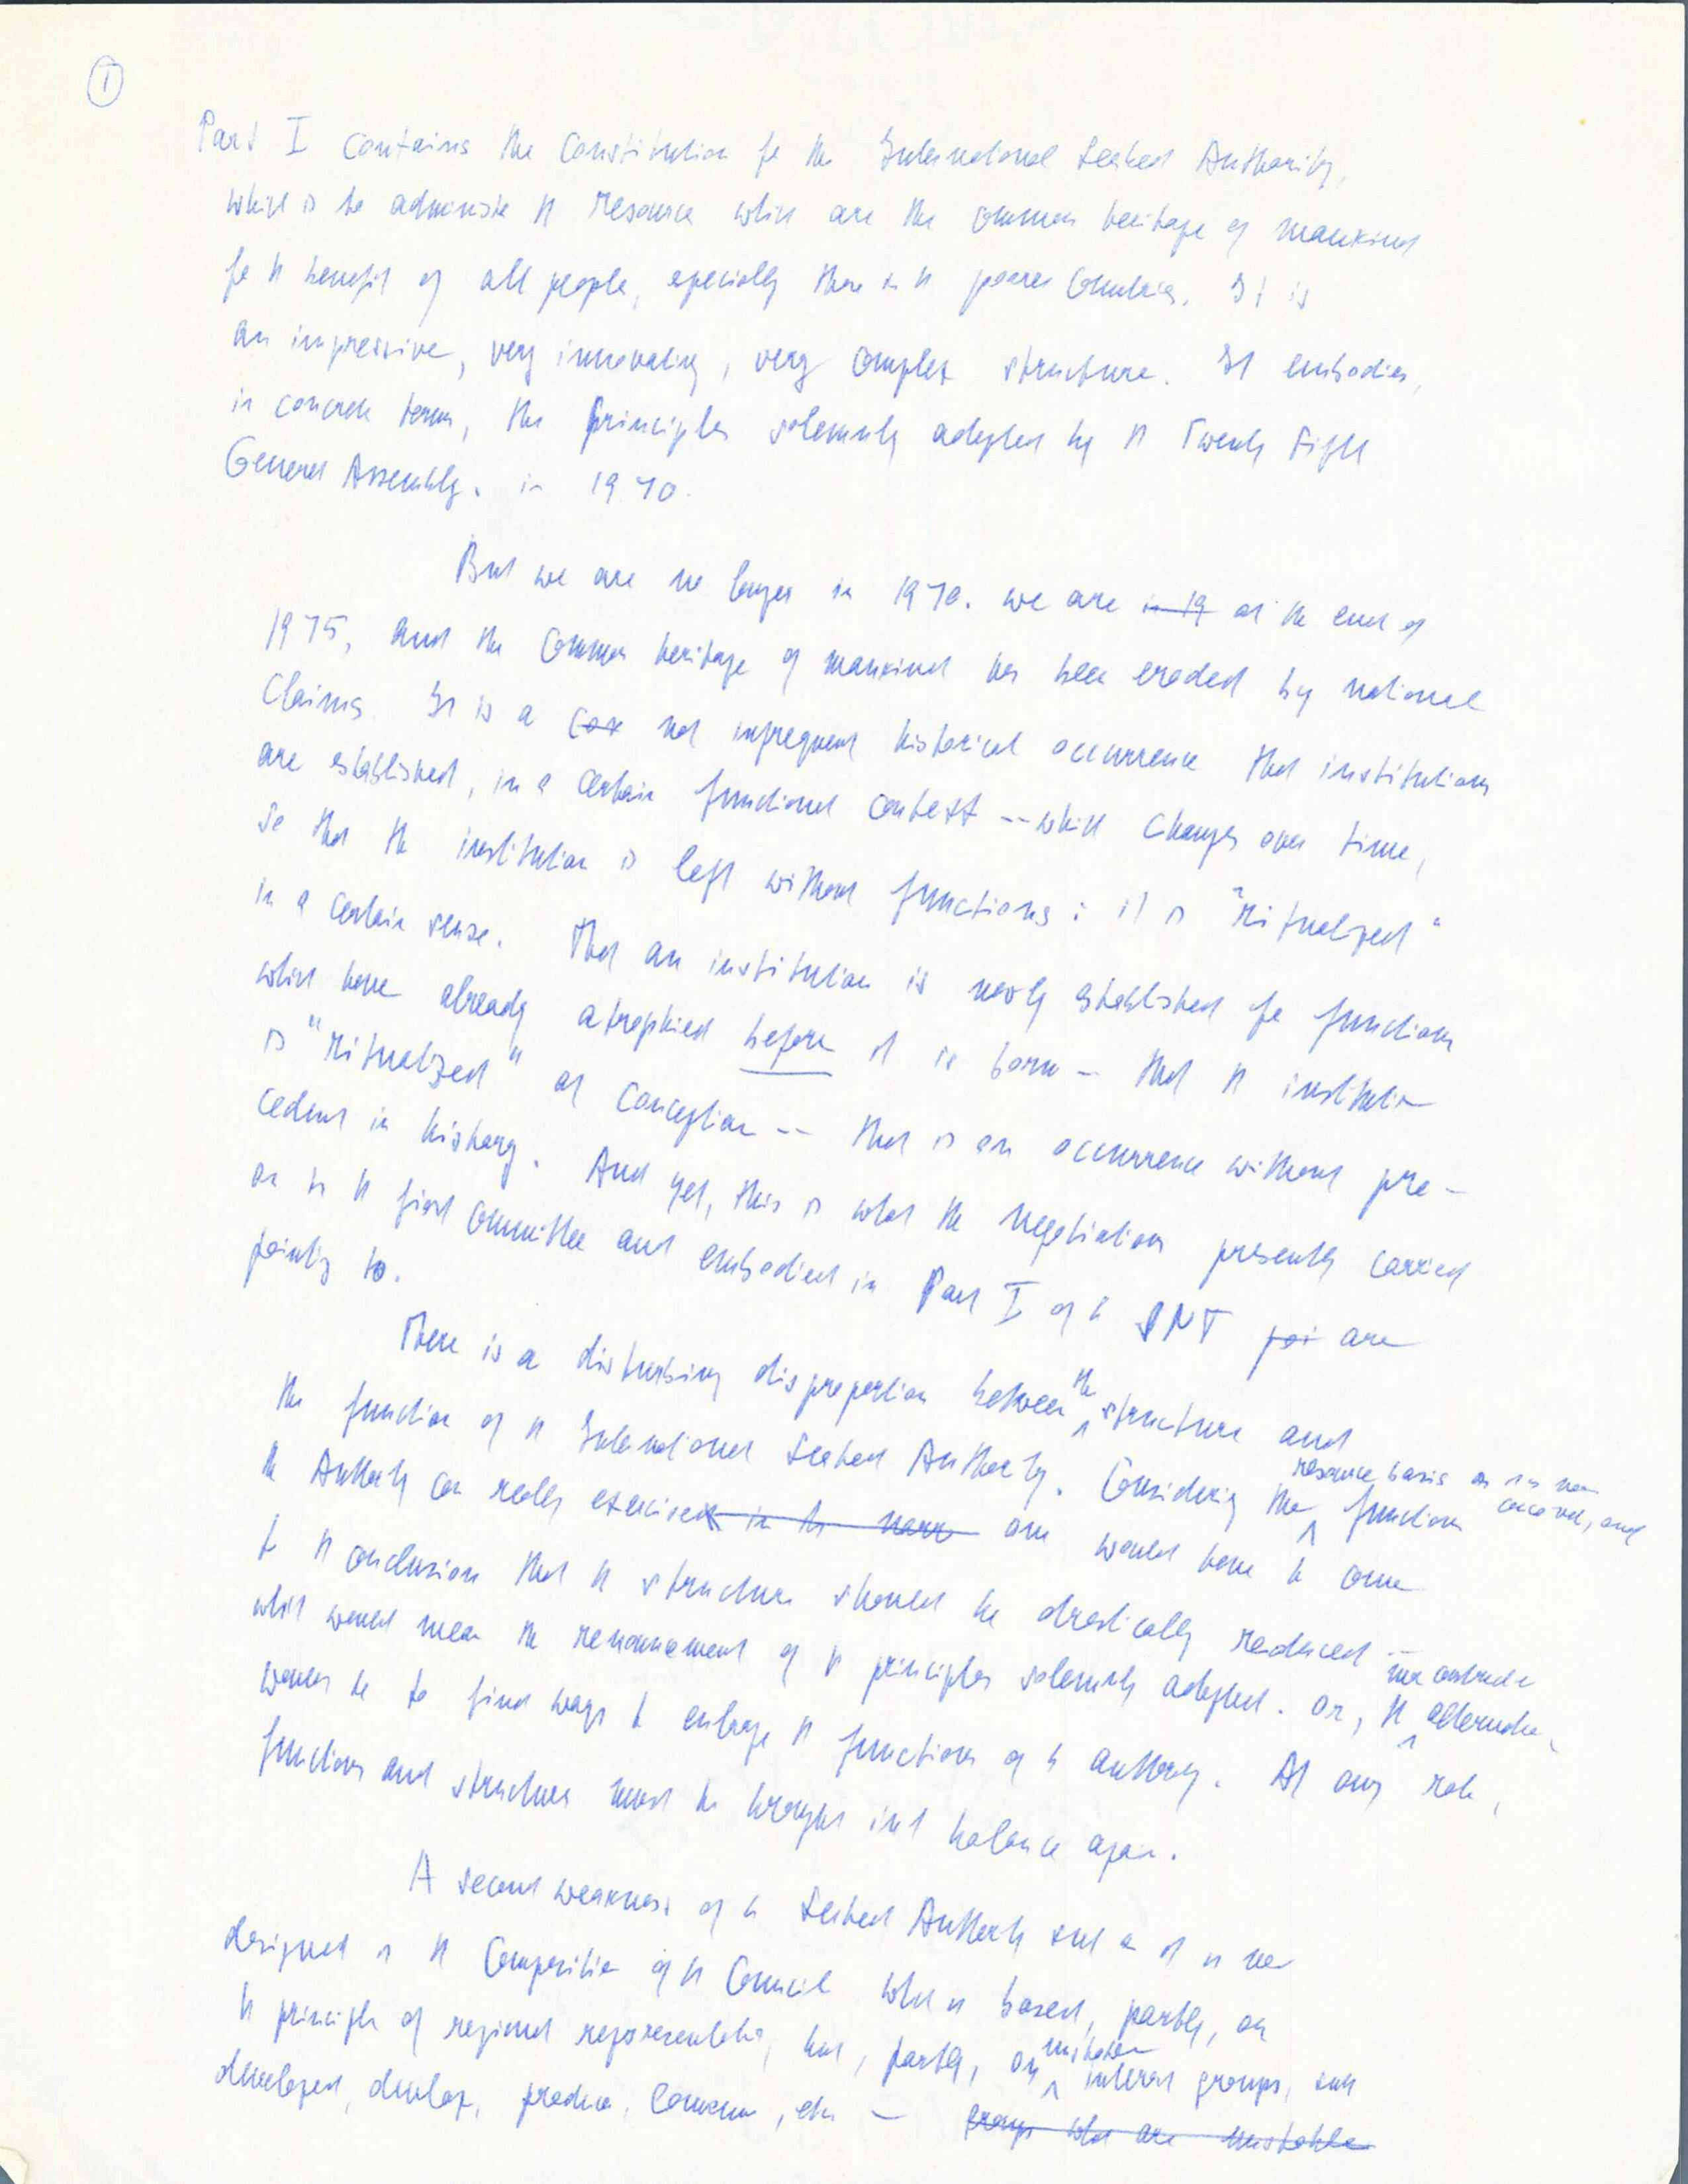 1
Part I contains the Constitution for the International Seabed Authority,
which is to administer the resources which are the common heritage of mankind
for the benefit of all people, especially those in the poorer countries. It is
an impressive, very innovating, very complex structure. It embodies,
in concrete terms, the principles solemnly adopted by the Twenty Fifth
General Assembly. in 1970.
But we are no longer in 1970. We are in 19 at the end of
1975, and the Common heritage of mankind has been eroded by national
Claims. It is a not infrequent historical occurrence that institutions
are established, in a certain functional context -- which changes over time,
so that the institution is left without functions: it is "ritualized"
in a certain sense. That an institution is newly established for functions
which have already atrophied before it is born - that the institution
is "ritualized" at conception -- that is an occurrence without pre-
cedent in history. And yet, this is what the negotiations presently carried
on in the first Committee and embodied in Part I of the SNT poi are
pointing to.
There is a disturbing disproportion between the structure and
the function of the International Seabed Authority. Considering the resource basis as it is now conceived, and functions
the Authority can really exercise in the narr one would have to come
to the conclusion that the structure should be drastically reduced --
which would mean the renouncement of the principles solemnly adopted. Or, the alternative,
would be to find ways to enlarge the functions of the authority. At any rate,
functions and structures must be brought into balance again.
A second weakness of the Seabed Authority such as it is now
designed is the Composition of the Council which is based, partly, on
the principle of regional representation, but, partly, on unstable interest groups, such
developed, develop, produce, consume, etc - groups which are unstable